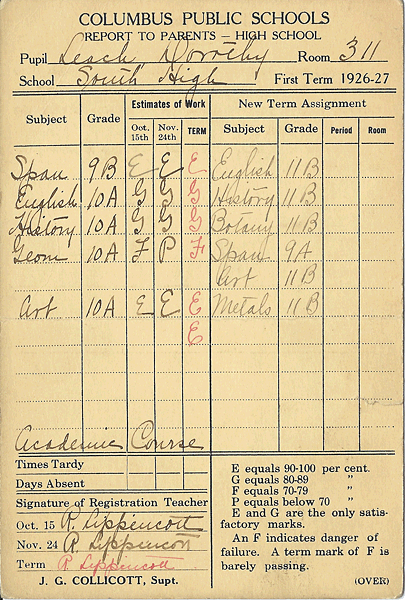 COLUMBUS PUBLIC SCHOOLS
REPORT TO PARENTS — HIGH SCHOOL
Pupil Leach Dorothy Room 311
School South High First Term 1926-27
Subject Grade Estimates of Work New Term Assignment
Oct. 15th Nov. 24th TERM Subject Grade Period Room
Span 9B E E E English 11B
English 10A G G G History 11B
History 10A G G G Botany 11B
Geom 10A F P F Span 9A
Art 11B
Art 10A E E E Metals 11B
E
Academic Course
Times Tardy
Days Absent
Signature of Registration Teacher
Oct. 15 R. Lippencott
Nov. 24 R. Lippencott
Term R. Lippencott
J. G. COLLICOTT, Supt.
E equals 90-100 per cent.
G equals 80-89 "
F equals 70-79 "
P equals below 70 "
E and G are the only satis-
factory marks.
An F indicates danger of
failure. A term mark of F is
barely passing.
(OVER)